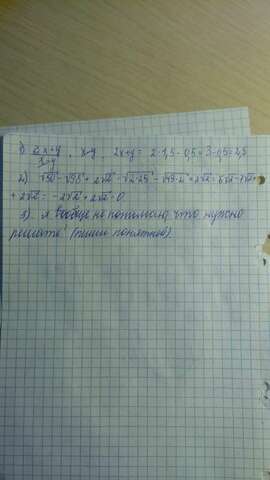 1) 2x+y/x-y · x-y · 2x+y = 2·1,5-0,5=3-0,5=2,5
2) √50-√98+2√2=√2·25-√49·2+2√2=5√2-7√2+
+2√2=-2√2+2√2=0
3) я вообще не понимала что нужно
решать! (пиши понятнее).